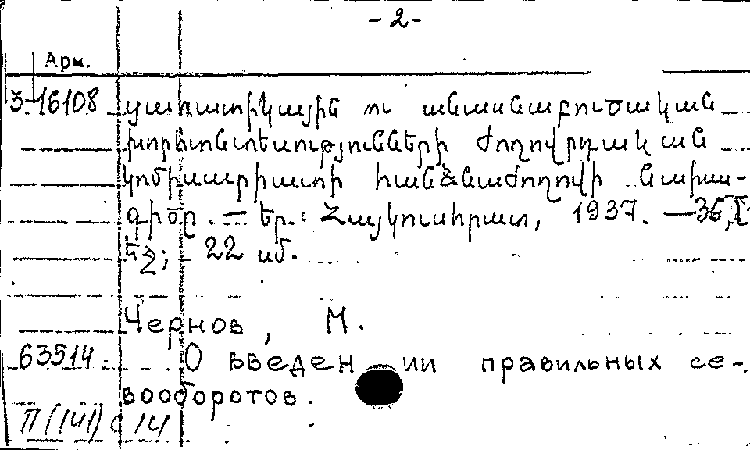 -2-
Арм.
3-16108 վառատիկային ու անասնաբուծական
խորհտնտեսությունների ժողովրդական
կոմիսարիատի հանձնաժողովի նախա-
գիծը. — Եր.: Հայկուսհրատ, 1937. — 36,
եջ; 22 սմ.
Чернов, М.
63514 О введении правильных се-
вооборотов.
П(141) с 14